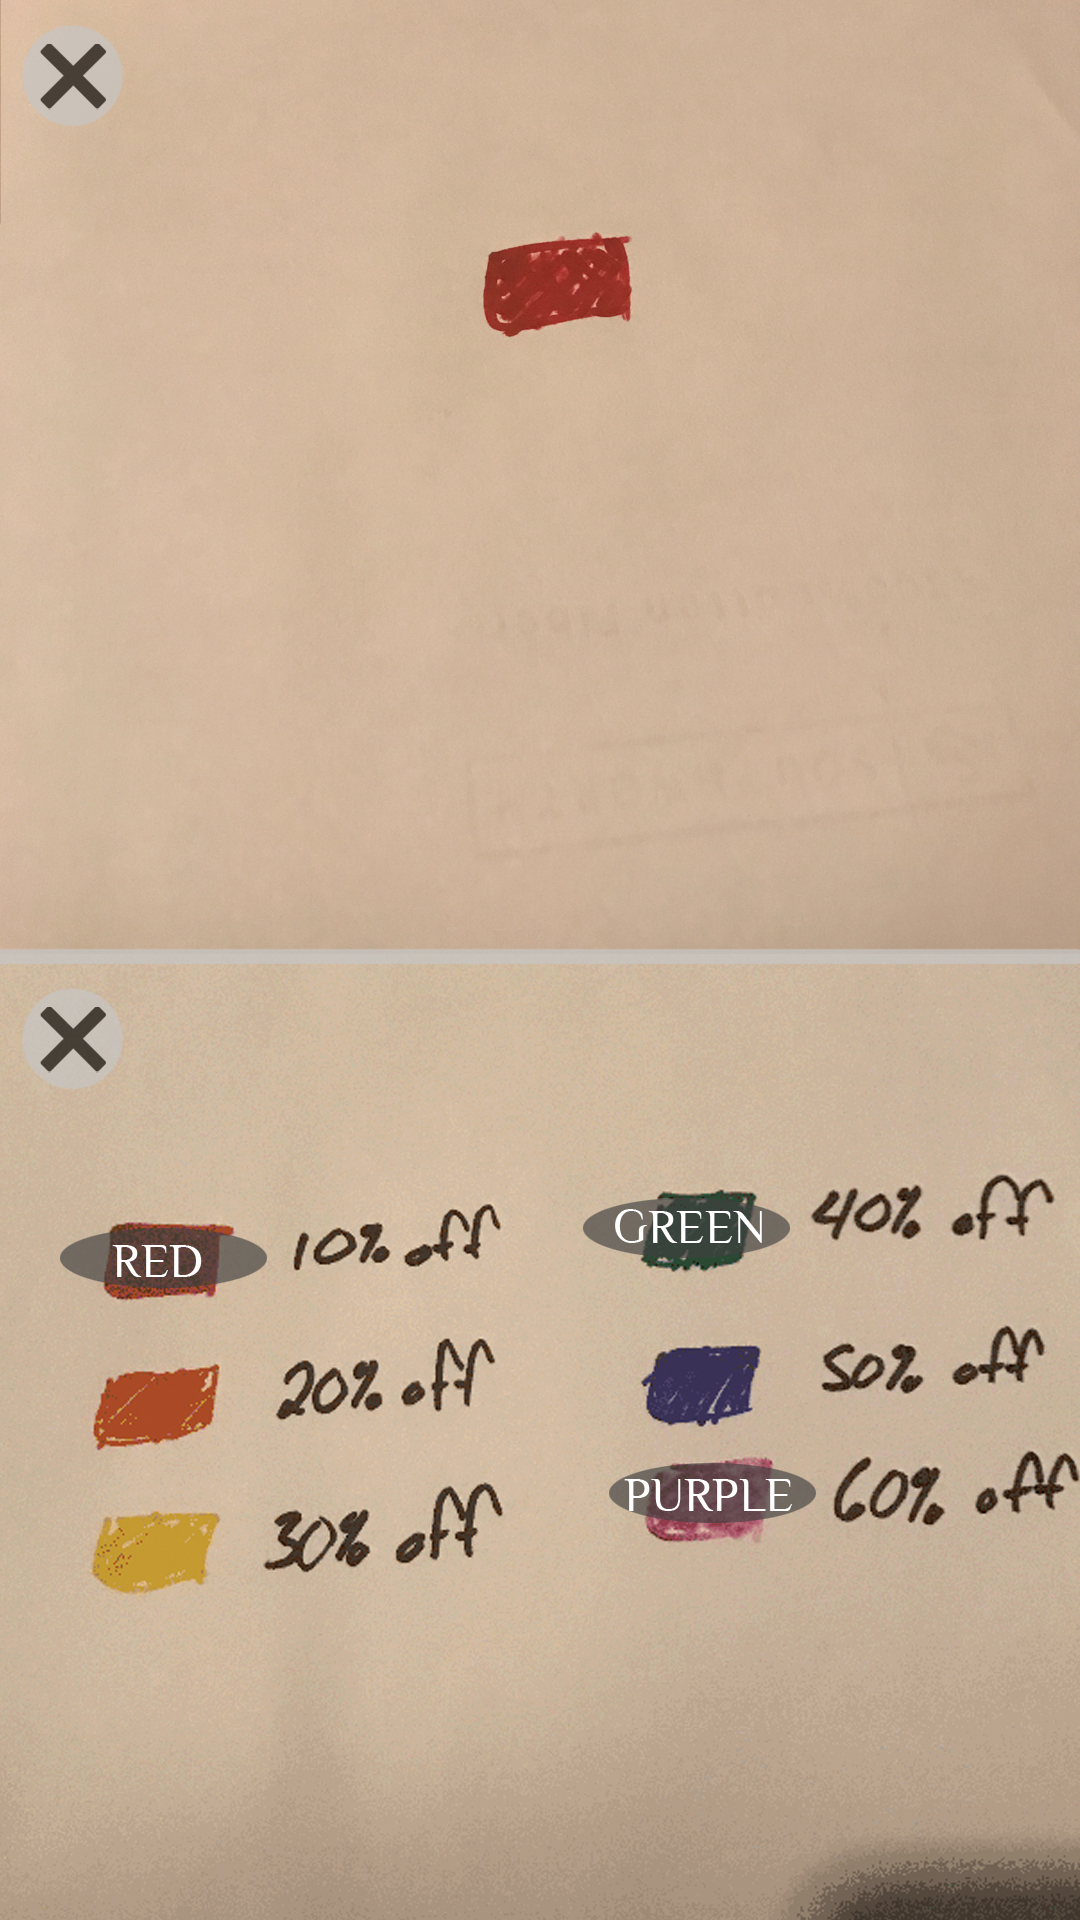 RED 10% off
20% off
30% off
GREEN 40% off
50% off
PURPLE 60% off